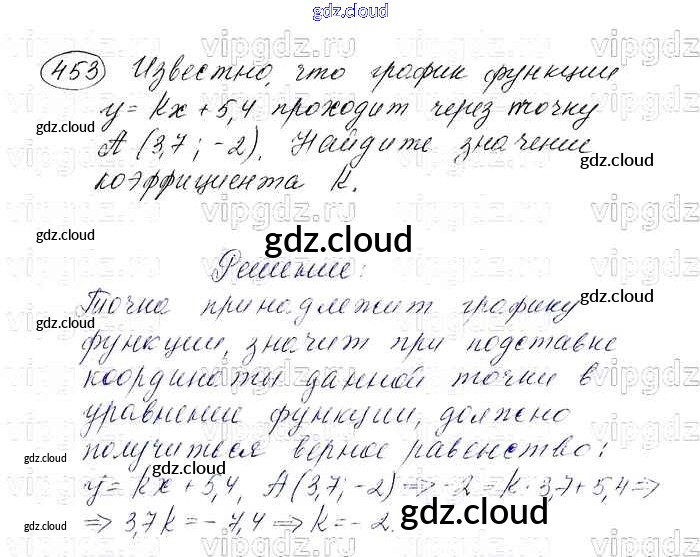 gdz.cloud
453 Известно, что график функции
y = kx + 5,4 проходит через точку
gdz.cloud
A (3,7; -2). Найдите значение
gdz.cloud
коэффициента k.
gdz.cloud
gdz.cloud
Решение:
Точка принадлежит графику
gdz.cloud
gdz.cloud
функции, значит при подставке
координаты данной точки в
gdz.cloud
уравнение функции, должно
получиться верное равенство:
gdz.cloud
gdz.cloud
y = kx + 5,4, A (3,7; -2) => -2 = k · 3,7 + 5,4 =>
=> 3,7k = -7,4 => k = -2.
gdz.cloud
gdz.cloud
vipgdz